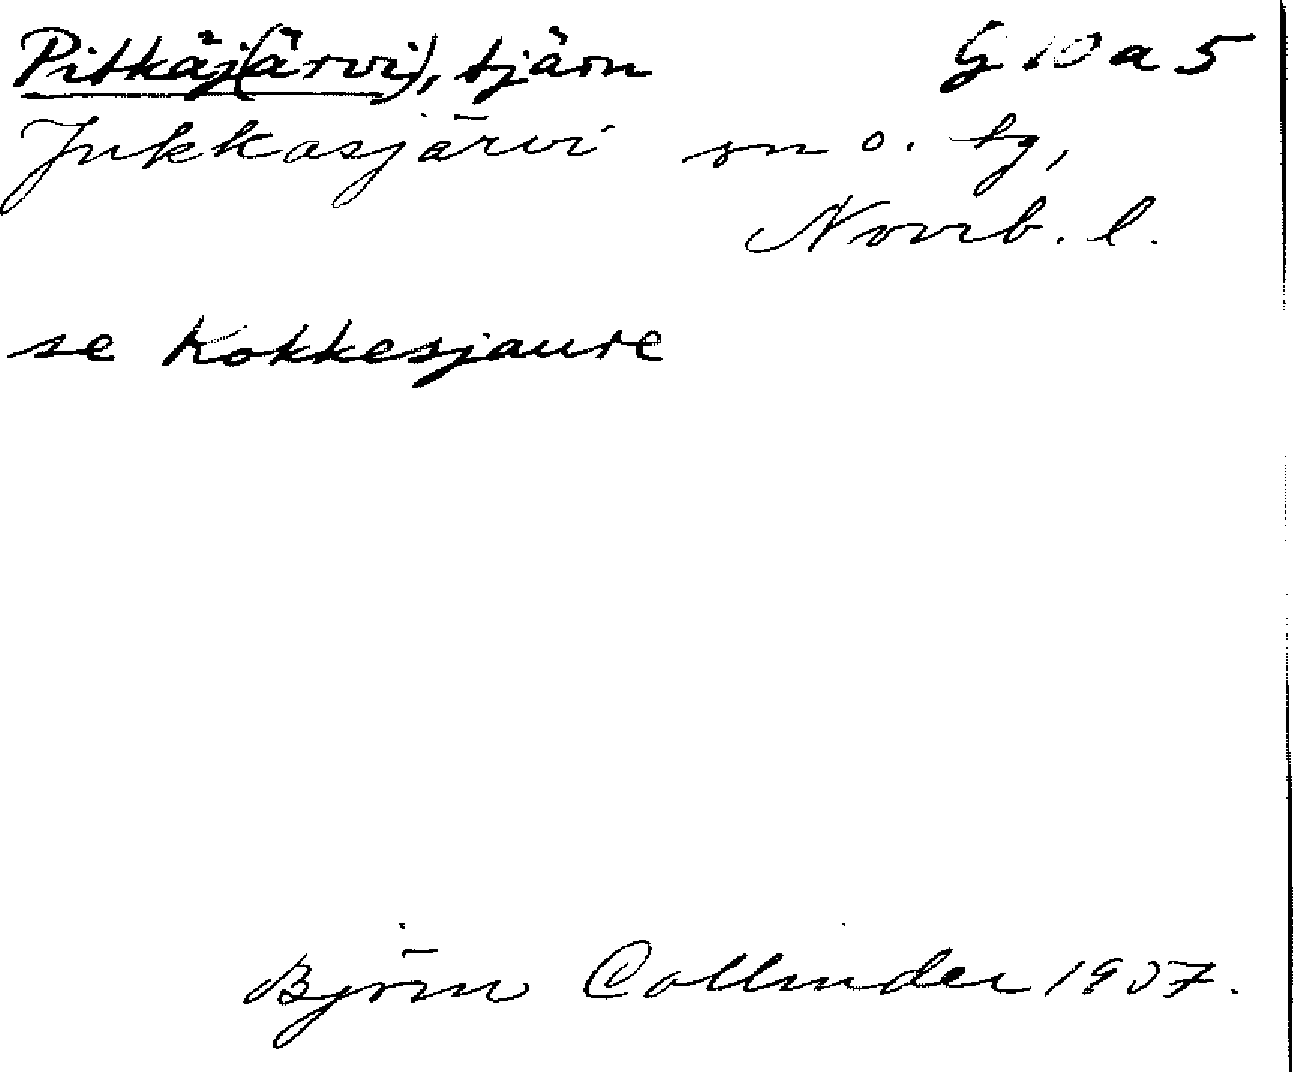 Pitkäj(ärvi), tjärn G 10 a 5
Jukkasjärvi sn o. tg,
Norrb. l.
se Kokkesjaure
Björn Collinder 1957.